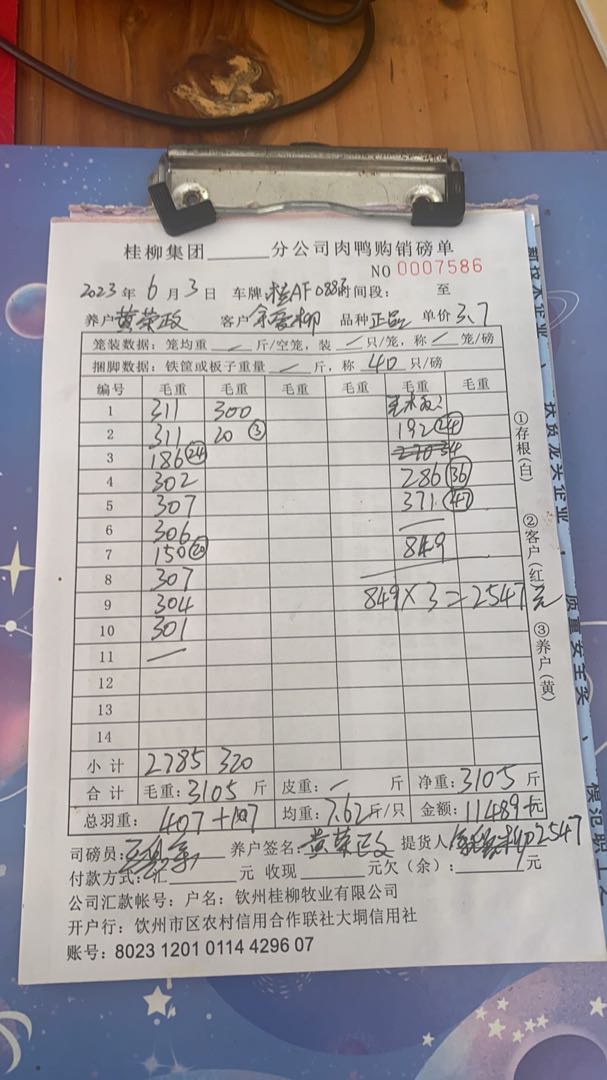 桂柳集团______分公司肉鸭购销磅单
NO 0007586
2023 年 6 月 3 日 车牌 桂AF088 时间段: 至
养户 黄荣政 客户 品种 正品 单价 3.7
笼装数据: 笼均重 / 斤/空笼, 装 / 只/笼, 称 / 笼/磅
捆脚数据: 铁筐或板子重量 / 斤, 称 40 只/磅
编号 毛重 毛重 毛重 毛重 毛重 毛重
1 311 300
2 311 20 ③ 192 24
3 186 24
4 302 286 36
5 307 371 47
6 306
7 150 20 849
8 307
9 304 849×3=2547元
10 301
11
12
13
14
小计 2785 320
合计 毛重: 3105 斤 皮重: / 斤 净重: 3105 斤
总羽重: 407+107 均重: 7.62 斤/只 金额: 11489 元
司磅员: 养户签名: 黄荣政 提货人 2547
付款方式: 汇______元 收现______元欠(余):______元
公司汇款帐号: 户名: 钦州桂柳牧业有限公司
开户行: 钦州市区农村信用合作联社大垌信用社
账号: 8023 1201 0114 4296 07
①存根(白)
②客户(红)
③养户(黄)
扶贫龙头企业